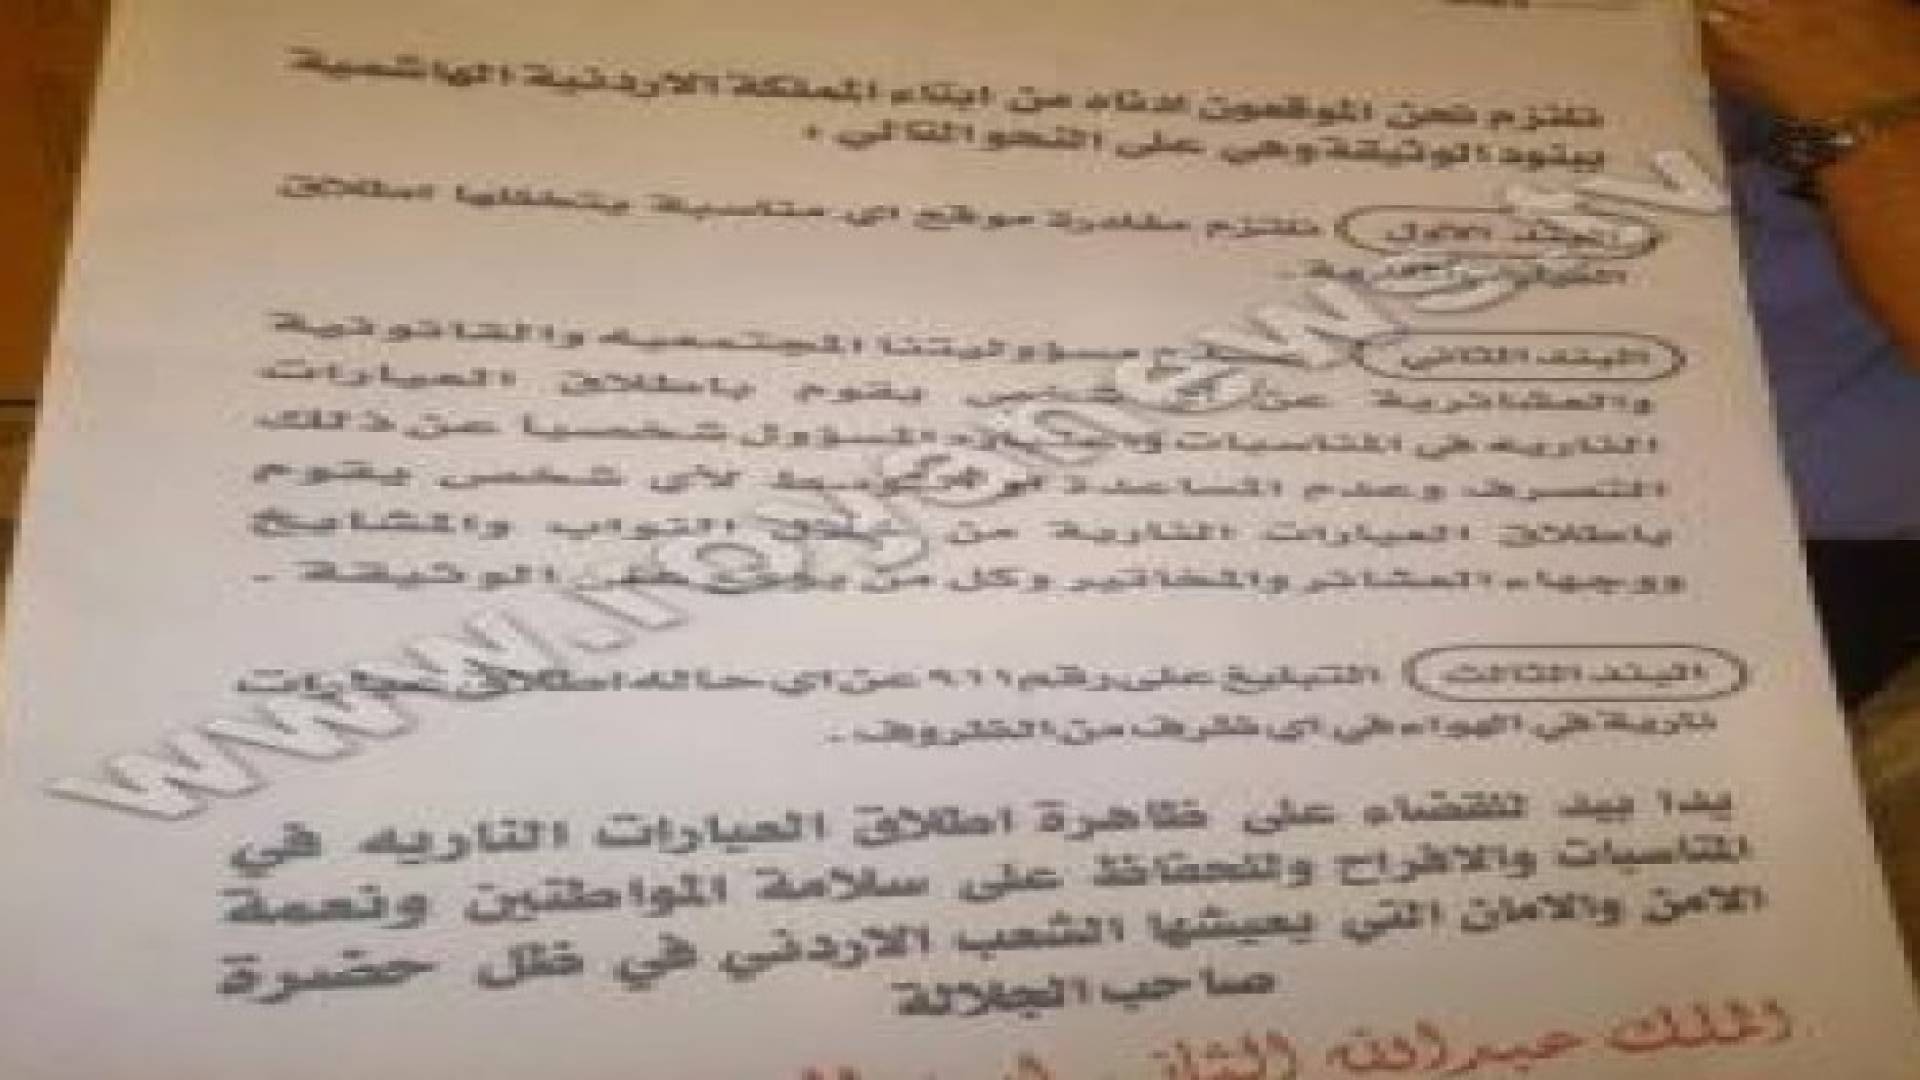 نلتزم نحن الموقعون ادناه من ابناء المملكة الاردنية الهاشمية
ببنود الوثيقة وهي على النحو التالي :
البند الاول نلتزم مغادرة موقع اي مناسبة يتخللها اطلاق
العيارات النارية .
البند الثاني مسؤوليتنا المجتمعيه والقانونية
والعشائرية عن اي شخص يقوم باطلاق العيارات
الناريه في المناسبات واعتباره المسؤول شخصيا عن ذلك
التصرف وعدم المساعدة او التوسط لاي شخص يقوم
باطلاق العيارات النارية من النواب والمشايخ
ووجهاء العشائر والمخاتير وكل من يوقع على الوثيقة .
البند الثالث التبليغ على رقم ٩١١ عن اي حاله اطلاق عيارات
نارية في الهواء في اي ظرف من الظروف .
يدا بيد للقضاء على ظاهرة اطلاق العيارات الناريه في
المناسبات والافراح وللحفاظ على سلامة المواطنين ونعمة
الامن والامان التي يعيشها الشعب الاردني في ظل حضرة
صاحب الجلالة
الملك عبدالله الثاني
www.royanews.tv